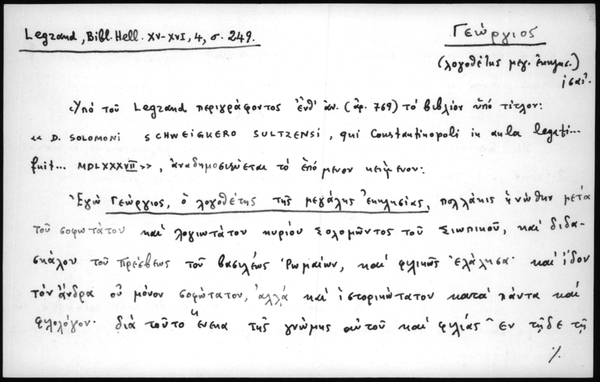 Legrand, Bibl. Hell. XV-XVI, 4, σ. 249.
Γεώργιος
(λογοθέτης μεγ. ἐκκλησ.)
ιςʹ αἰ.
Ὑπό τοῦ Legrand περιγράφοντος ἐνθ' ἀν. (ἀρ. 769) τό βιβλίον ὑπό τίτλον:
« D. SOLOMONI SCHWEIGKERO SULTZENSI, qui Constantinopoli in aula legati...
fuit... MDLXXXVII », ἀναδημοσιεύεται τό ἑπόμενον κείμενον:
Ἐγώ Γεώργιος, ὁ λογοθέτης τῆς μεγάλης ἐκκλησίας, πολλάκις ἡνώθην μετά
τοῦ σοφωτάτου καί λογιωτάτου κυρίου Σολομῶντος τοῦ Σιωπικοῦ, καί διδα-
σκάλου τοῦ πρέσβεως τοῦ βασιλέως Ῥωμαίων, καί φιλικῶς ἐλάλησα· καί ἴδον
τόν ἄνδρα οὐ μόνον σοφώτατον, ἀλλά καί ἱστορικώτατον κατά πάντα καί
φιλολόγον· διά τοῦτο ἕνεκα τῆς γνώμης αὐτοῦ καί φιλίας ἐν τῇδε τῇ
./.